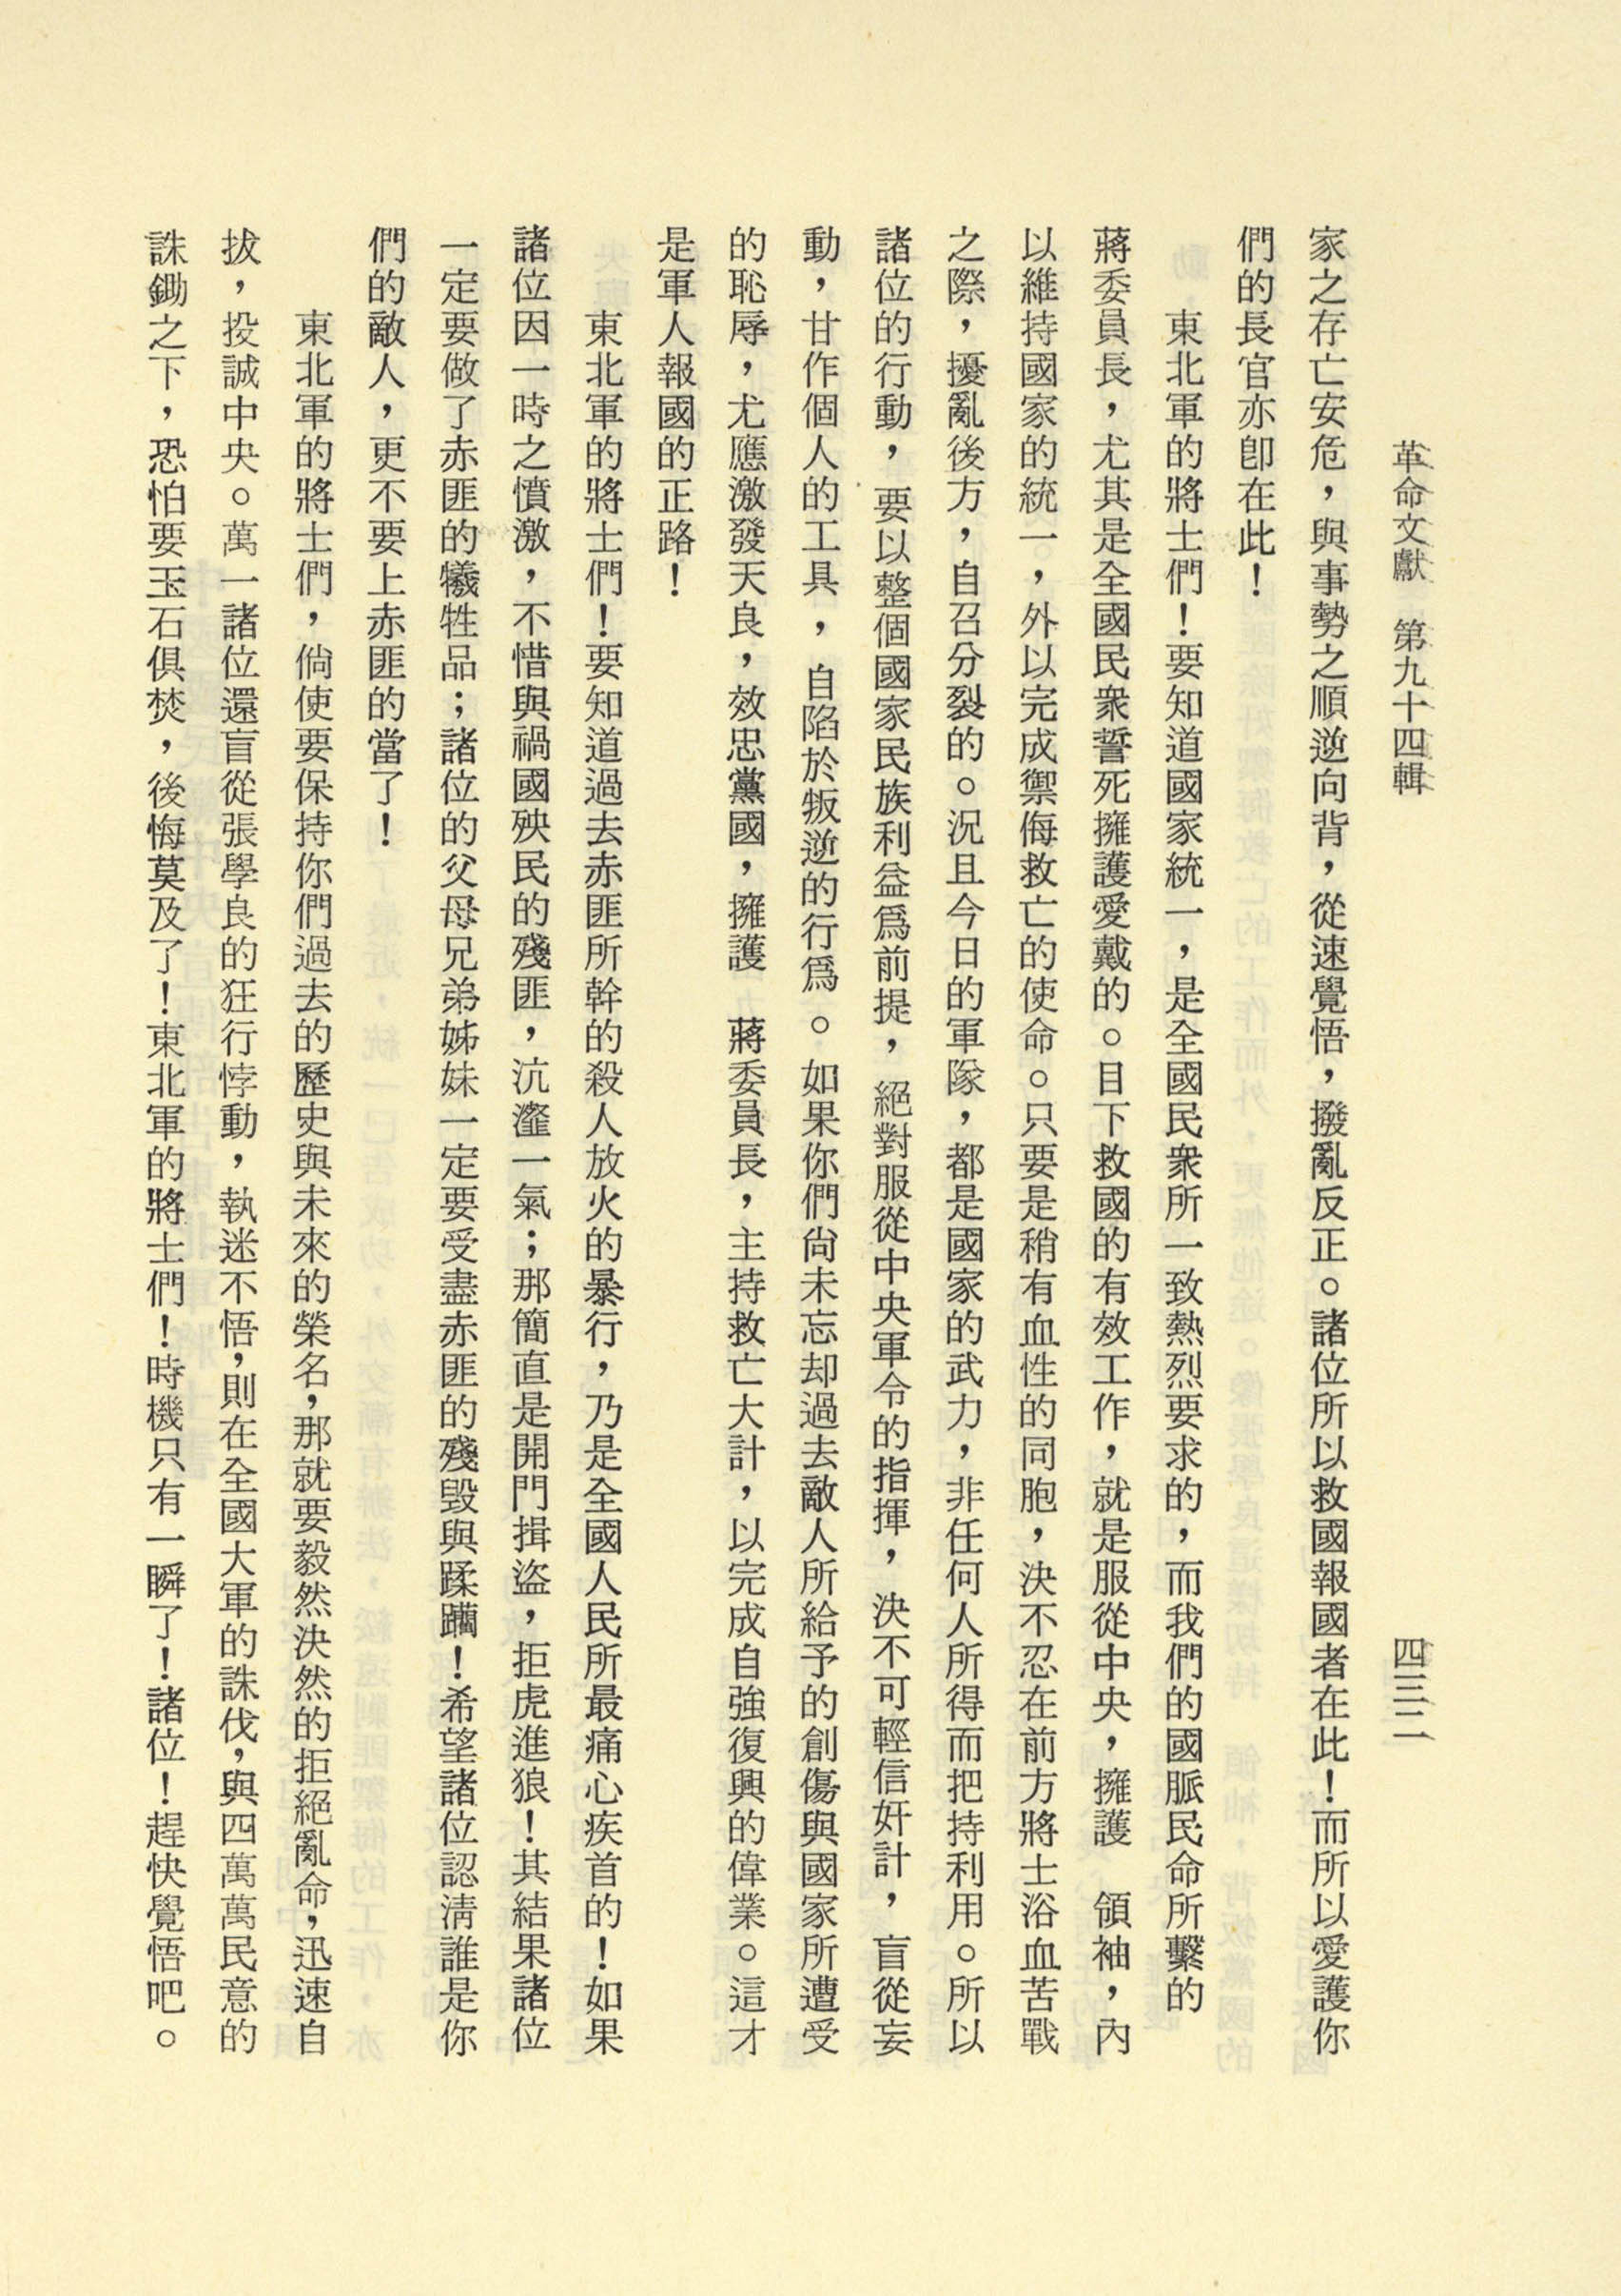 革命文獻　第九十四輯　四三二
家之存亡安危，與事勢之順逆向背，從速覺悟，撥亂反正。諸位所以救國報國者在此！而所以愛護你
們的長官亦卽在此！
東北軍的將士們！要知道國家統一，是全國民衆所一致熱烈要求的，而我們的國脈民命所繫的
蔣委員長，尤其是全國民衆誓死擁護愛戴的。目下救國的有效工作，就是服從中央，擁護　領袖，內
以維持國家的統一，外以完成禦侮救亡的使命。只要是稍有血性的同胞，決不忍在前方將士浴血苦戰
之際，擾亂後方，自召分裂的。況且今日的軍隊，都是國家的武力，非任何人所得而把持利用。所以
諸位的行動，要以整個國家民族利益爲前提，絕對服從中央軍令的指揮，決不可輕信奸計，盲從妄
動，甘作個人的工具，自陷於叛逆的行爲。如果你們尙未忘却過去敵人所給予的創傷與國家所遭受
的恥辱，尤應激發天良，效忠黨國，擁護　蔣委員長，主持救亡大計，以完成自強復興的偉業。這才
是軍人報國的正路！
東北軍的將士們！要知道過去赤匪所幹的殺人放火的暴行，乃是全國人民所最痛心疾首的！如果
諸位因一時之憤激，不惜與禍國殃民的殘匪，沆瀣一氣；那簡直是開門揖盜，拒虎進狼！其結果諸位
一定要做了赤匪的犧牲品；諸位的父母兄弟姊妹一定要受盡赤匪的殘毀與蹂躪！希望諸位認淸誰是你
們的敵人，更不要上赤匪的當了！
東北軍的將士們，倘使要保持你們過去的歷史與未來的榮名，那就要毅然決然的拒絕亂命，迅速自
拔，投誠中央。萬一諸位還盲從張學良的狂行悖動，執迷不悟，則在全國大軍的誅伐，與四萬萬民意的
誅鋤之下，恐怕要玉石俱焚，後悔莫及了！東北軍的將士們！時機只有一瞬了！諸位！趕快覺悟吧。